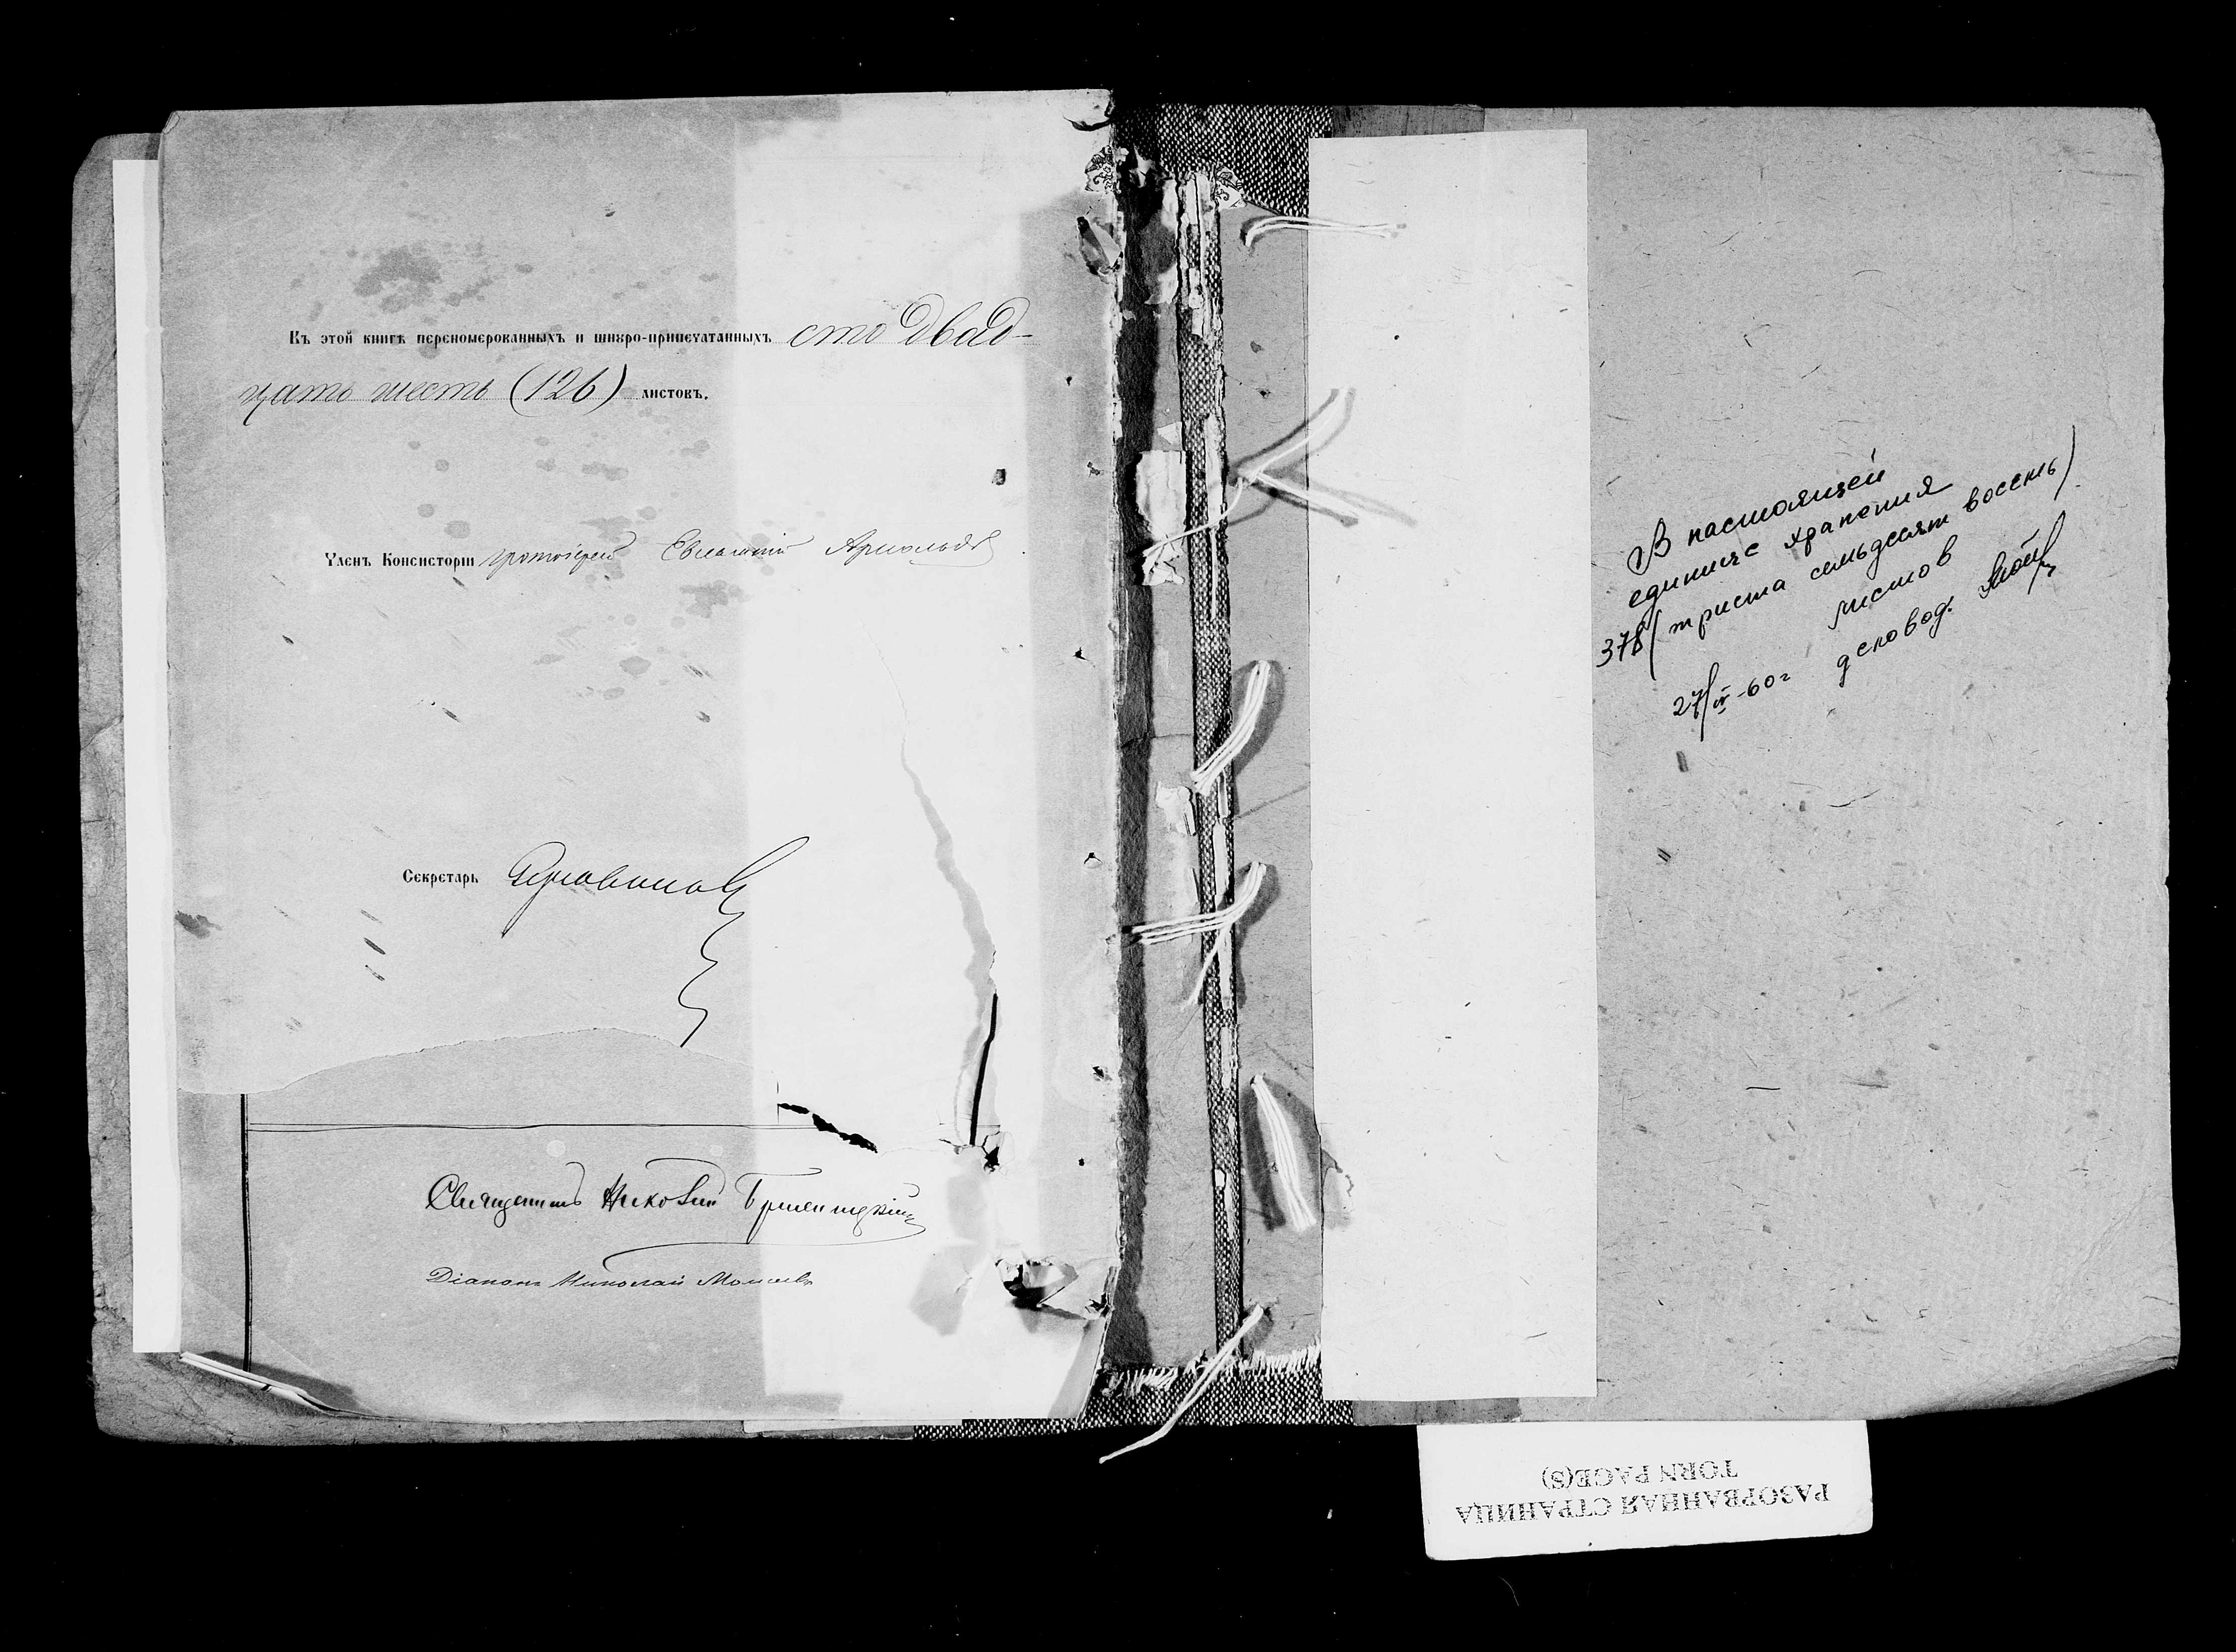 Къ этой книгѣ перенумерованныхъ и шнуро-припечатанныхъ сто двад-
цать шесть (126) листовъ.
Членъ Консисторіи протоіерей Евлампій Арнольдовъ
Секретарь
Священникъ
Діаконъ Николай Моисеевъ
В настоящей
единице хранения
378 (триста семьдесят восемь)
листов
27/IV-60 г деловод.
РАЗОРВАННАЯ СТРАНИЦА
TORN PAGE(S)